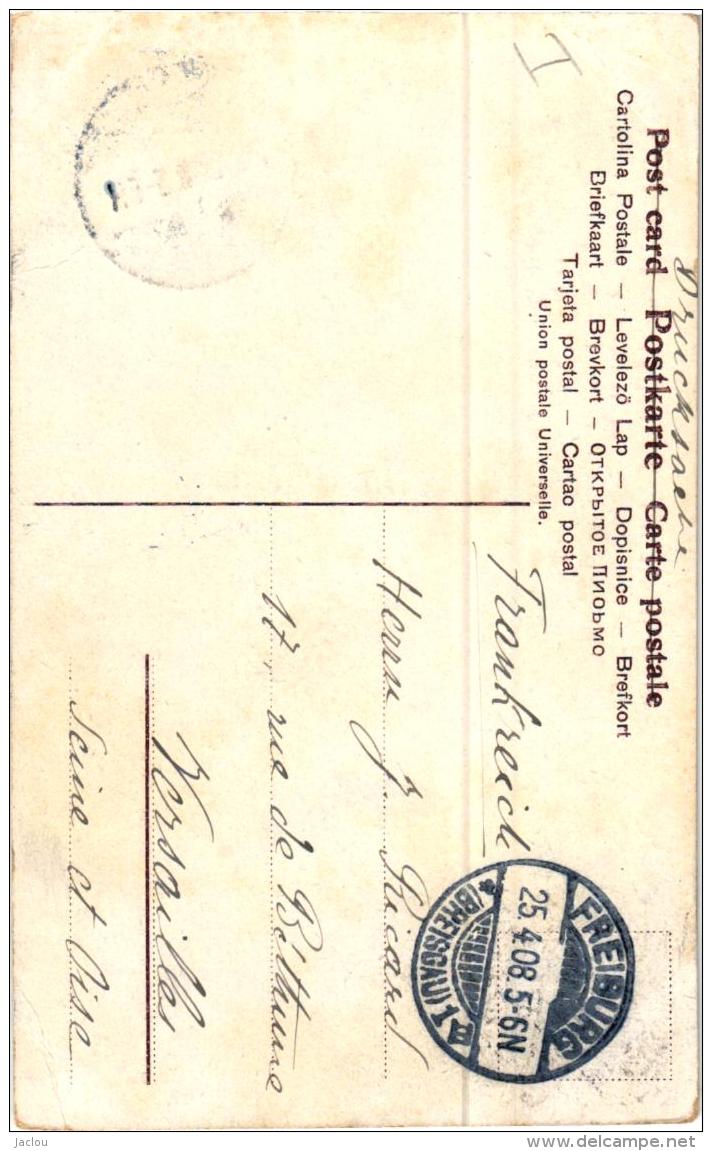 Drucksache
Post card Postkarte Carte postale
Cartolina Postale — Levelező Lap — Dopisnice — Brefkort
Briefkaart — Brevkort — Открытое письмо
Tarjeta postal — Cartao postal
Union postale Universelle.
I
FREIBURG
25.4.08.5-6N
* (BREISGAU) 1 a
Frankreich
Herrn J. Ricard
17, rue de Béthune
Versailles
Seine et Oise
Jaclou
www.delcampe.net